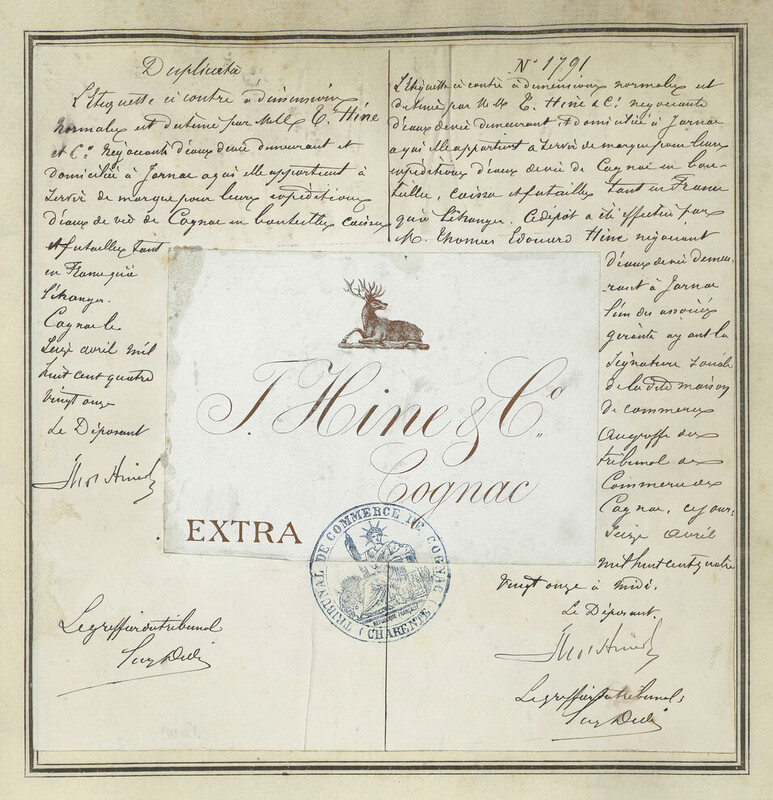 Duplicata
L'Etiquette ci contre à dimensions
normales est destiné par MM. T. Hine
et Cº. négociants d'eaux de vie demeurant et
domiciliés à Jarnac a qui elle appartient à
servir de marque pour leurs expéditions
d'eaux de vie de Cognac en bouteilles caisses
et futailles tant
en France qu'à
l'étranger.
Cognac le
seize avril mil
huit cent quatre
vingt onze
Le Déposant
Thos Hine
Le greffier du tribunal
Nº 1791
L'etiquette ci contre à dimensions normales est
destiné par MM. T. Hine & Cº. négociants
d'eaux de vie demeurant et domiciliés à Jarnac
a qui elle appartient à servir de marque pour leurs
expéditions d'eaux de vie de Cognac en bou-
teilles, caisses et futailles tant en France
qu'à l'étranger. Ce dépôt a été effectué par
M. Thomas Edouard Hine négociant
d'eaux de vie demeu-
rant à Jarnac
l'un des associés
gérants ayant la
signature sociale
de la dite maison
de commerce
au greffe du
tribunal de
Commerce de
Cognac, ce jour
seize avril
mil huit cent quatre
vingt onze à midi.
Le Déposant.
Thos Hine
Le greffier du tribunal
T. Hine & Cº.
Cognac
EXTRA
TRIBUNAL DE COMMERCE DE COGNAC
(CHARENTE)